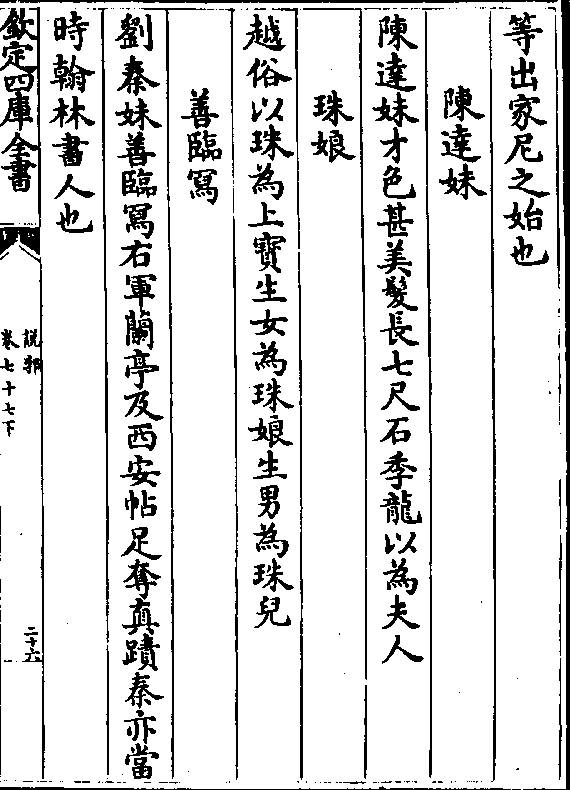 等出家尼之始也
陳達妹
陳達妹才色甚美髮長七尺石季龍以為夫人
珠娘
越俗以珠為上寶生女為珠娘生男為珠兒
善臨寫
劉秦妹善臨寫右軍蘭亭及西安帖足奪真蹟秦亦當
時翰林書人也
欽定四庫全書
說郛
卷七十七下
二十六